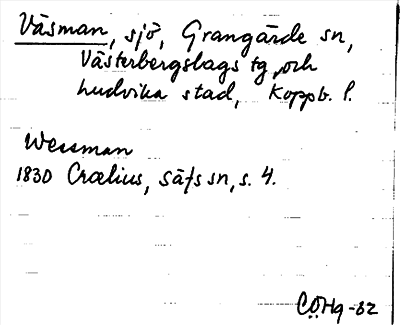 Väsman, sjö, Grangärde sn,
Västerbergslags tg, och
Ludvika stad, Koppb. l.
Wessman
1830 Crælius, Säfs sn, s. 4.
CÖHg -82